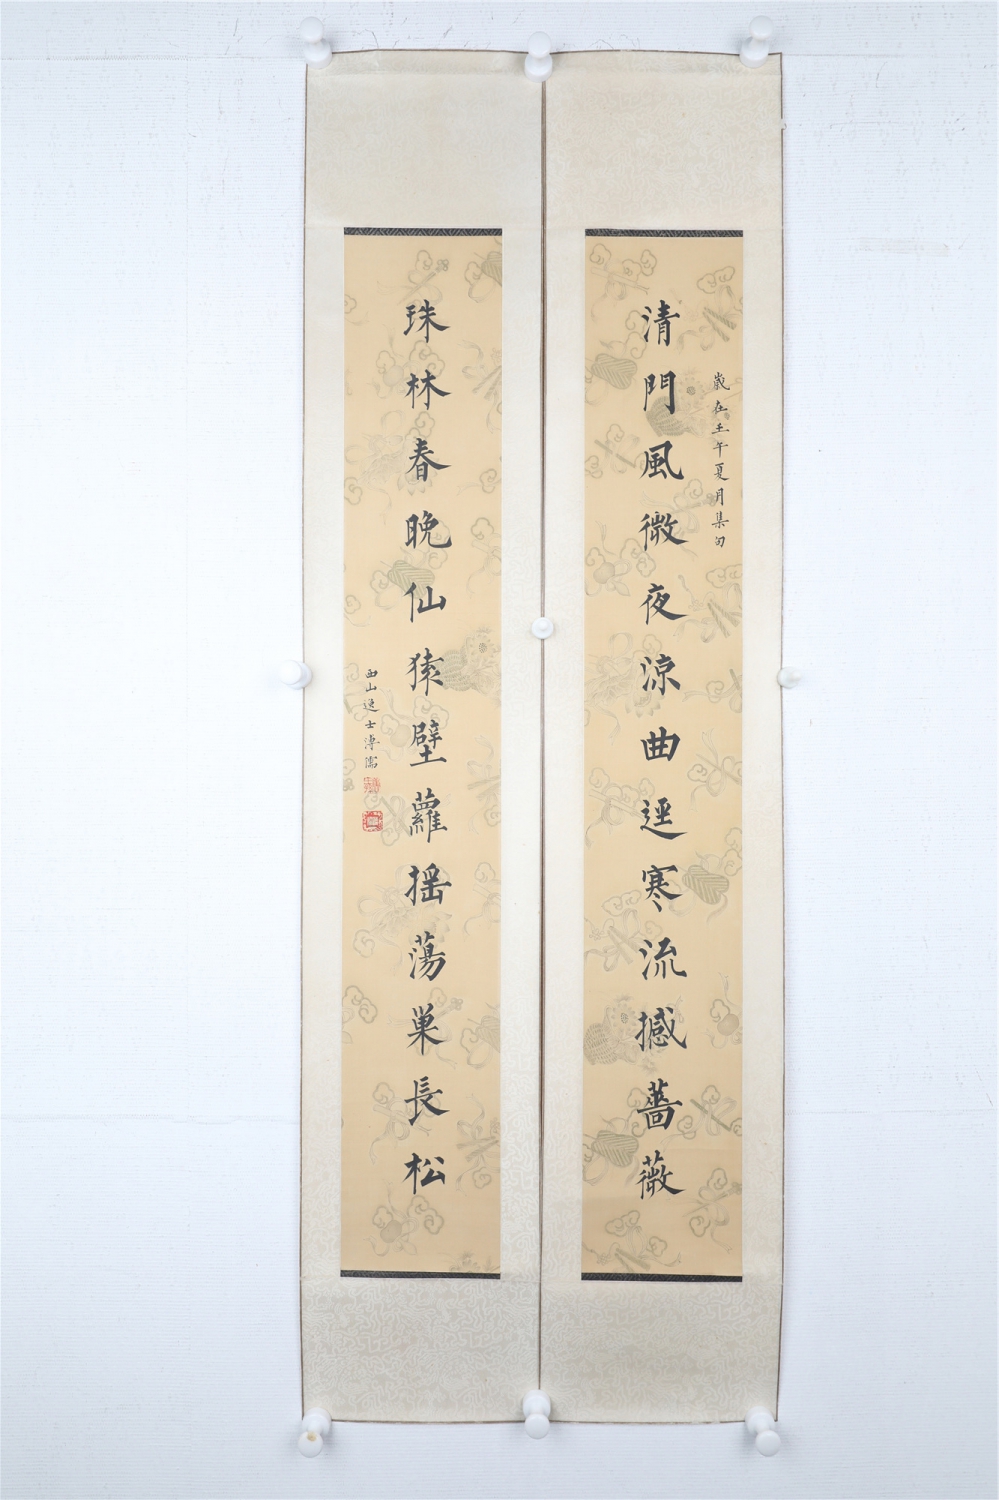 清門風微夜涼曲逕寒流撼薔薇
歲在壬午夏月集句
珠林春晚仙猿壁蘿摇蕩巢長松
西山逸士溥儒